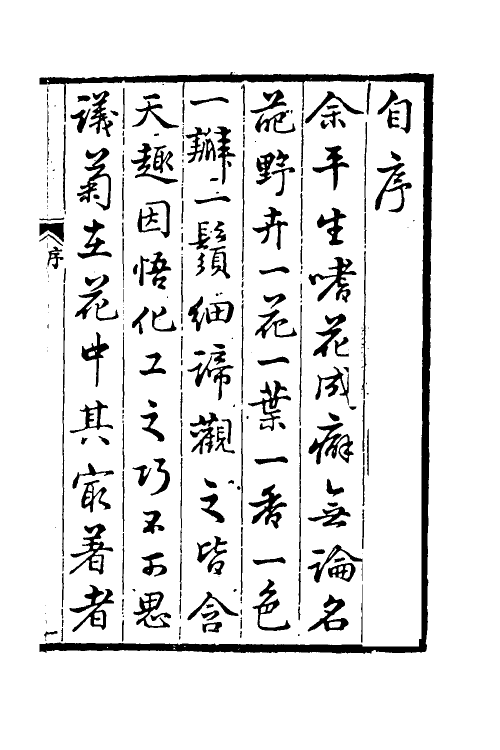 自序
余平生嗜花成癖無論名
葩野卉一花一葉一香一色
一瓣一鬚細諦觀之皆含
天趣因悟化工之巧不可思
議菊在花中其最著者
序
一